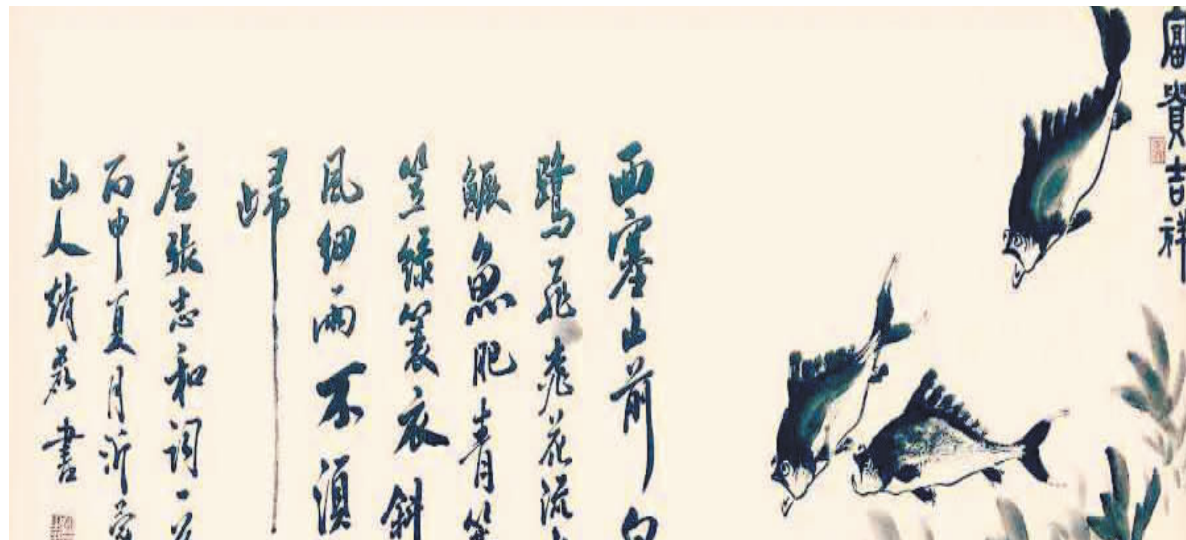 富貴吉祥
西塞山前白
鷺飛桃花流
鱖魚肥青箬
笠綠簑衣斜
風細雨不須
歸
唐張志和詞一首
丙申夏月沂蒙
山人趙書